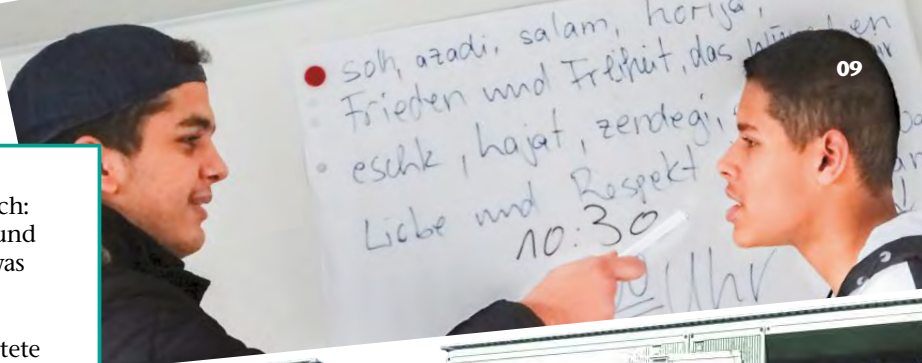 09
solh, azadi, salam, horija,
Frieden und Freiheit, das wünschen
eschk, hajat, zendegi,
Liebe und Respekt
10:30
Uhr
ch:
und
was
tete